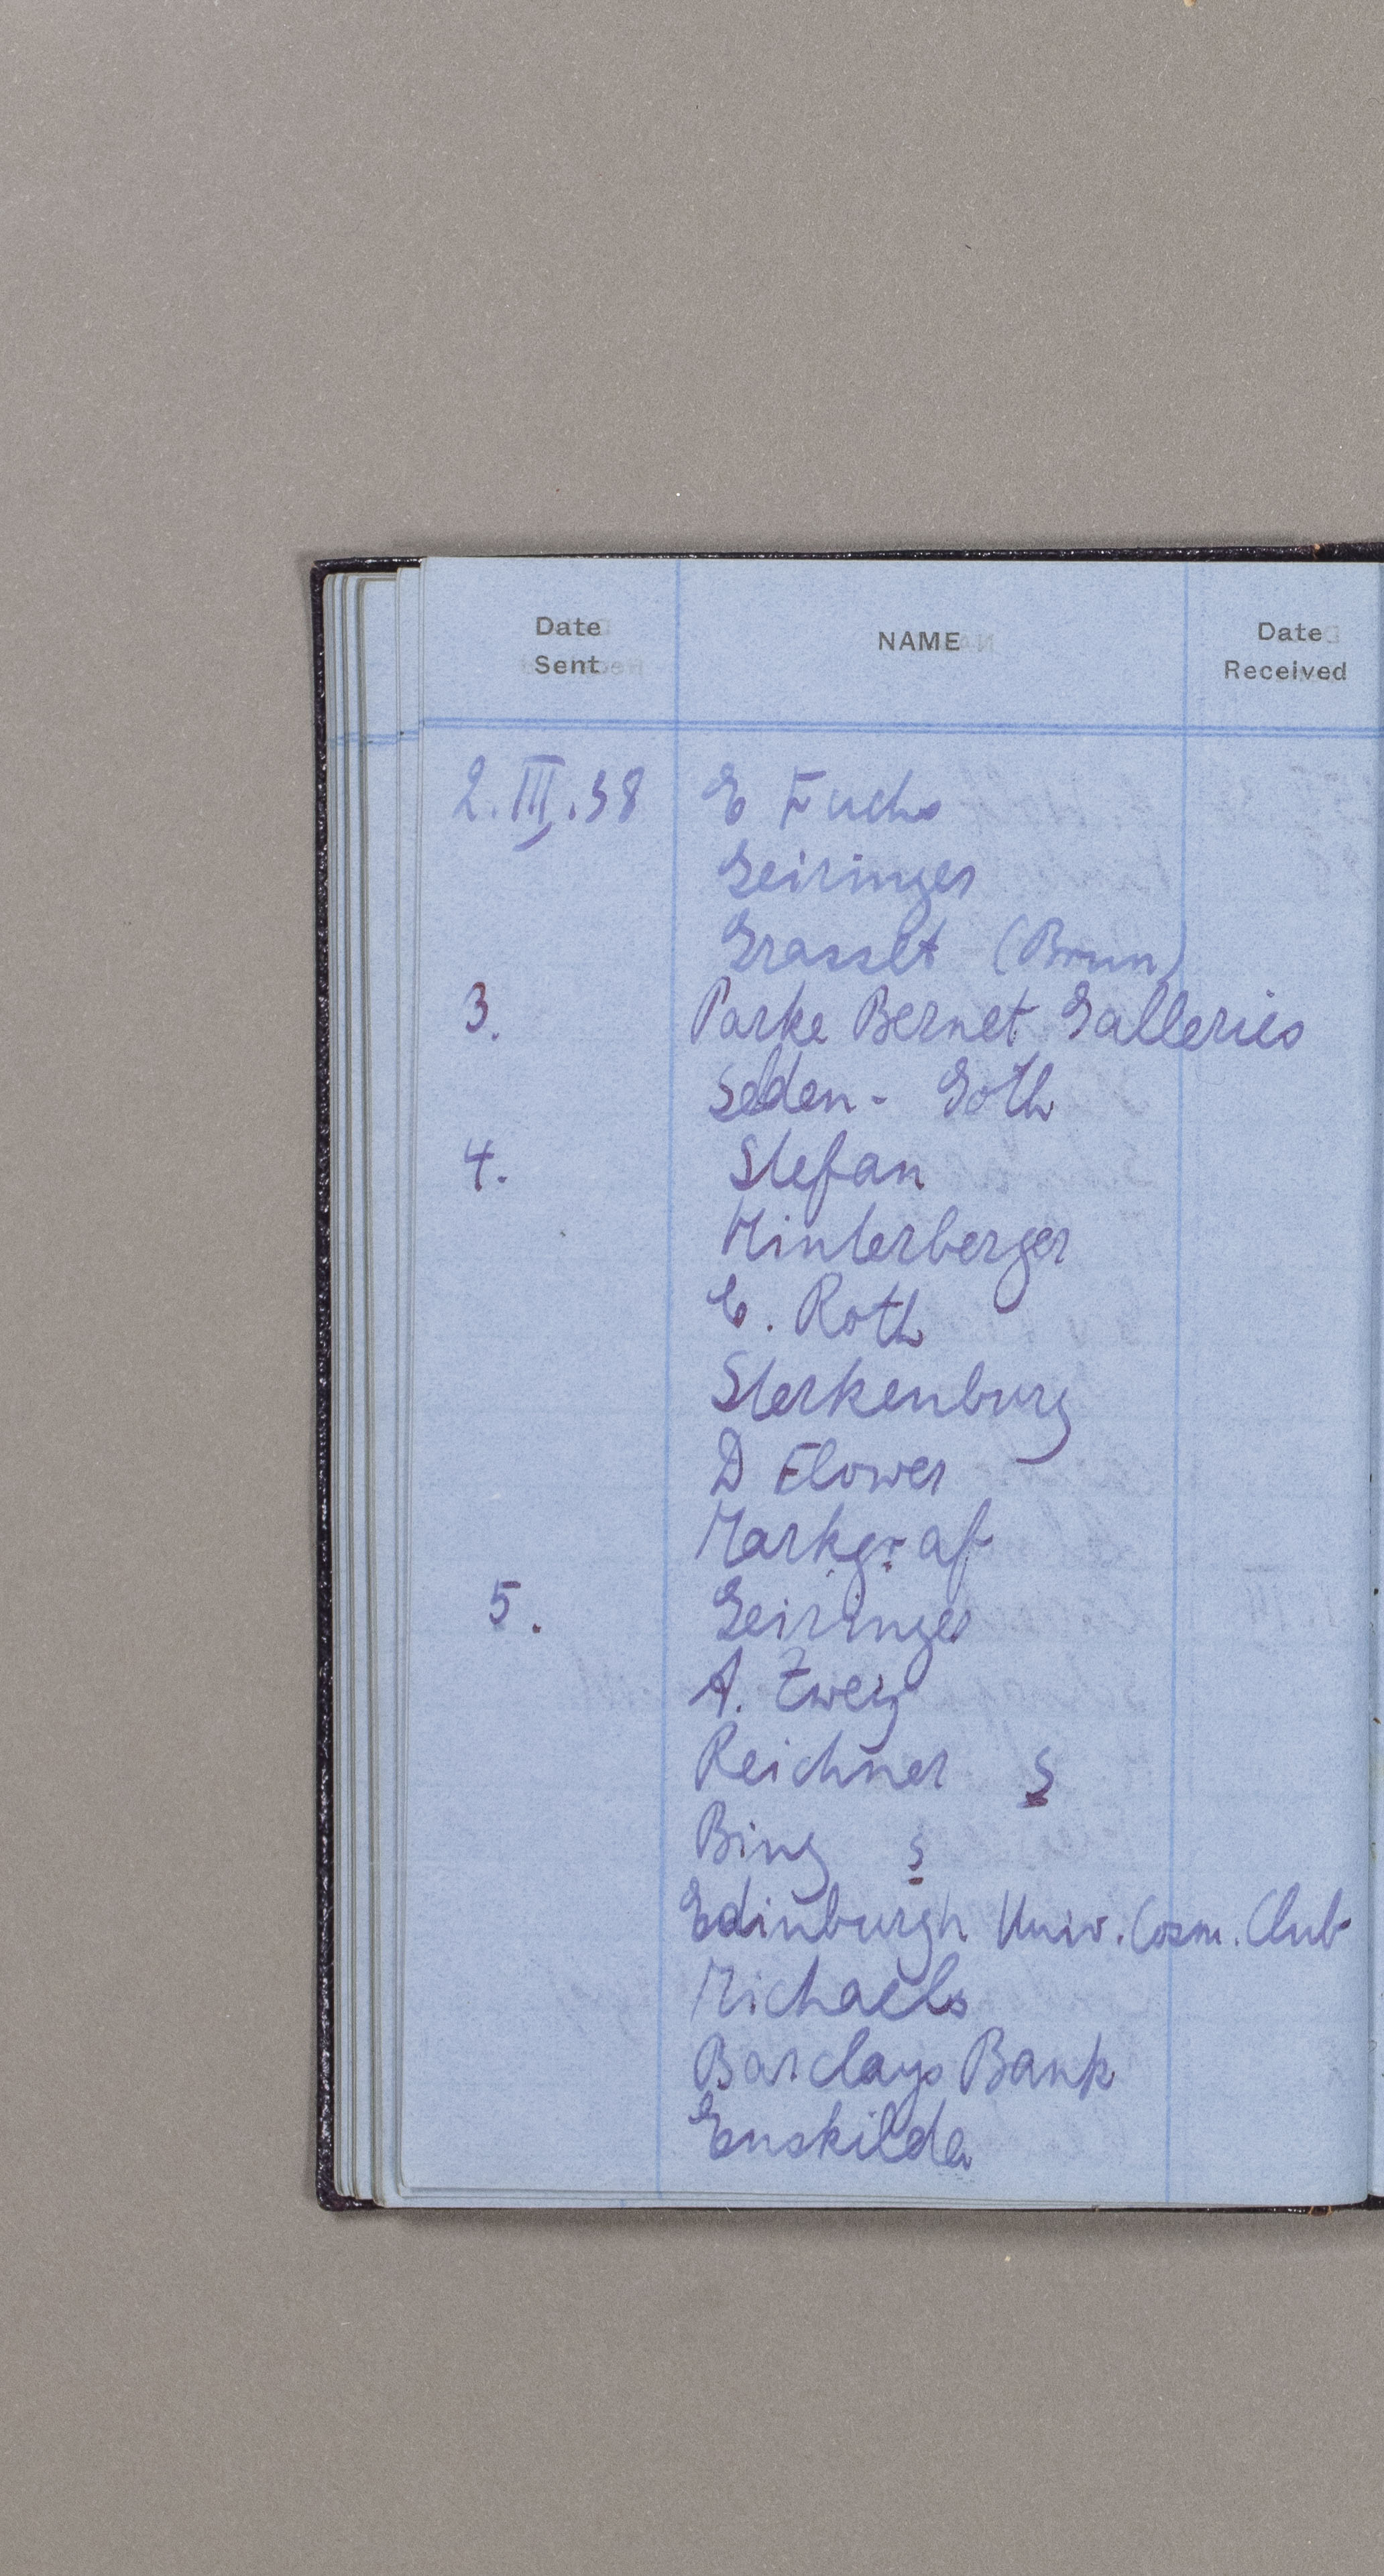 Date Sent NAME Date Received
2.III.38 E Fuchs
Geiringer
Grasset (Brun)
3. Parke Bernet Galleries
Selden-Goth
4. Stefan
Hinterberger
E. Roth
Sterkenburg
D Flower
Markgraf
5. Geiringer
A. Zweig
Reichner S
Bing S
Edinburgh Univ. Cosm. Club
Michaels
Barclays Bank
Enskilda